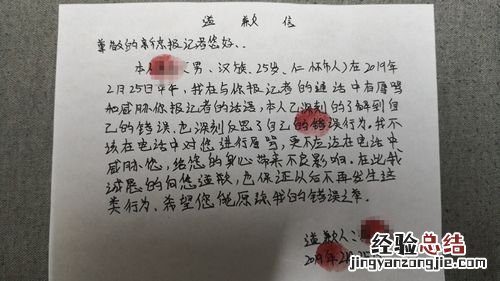 道歉信
尊敬的新京报记者您好、
本人 (男、汉族、25岁、仁怀市人)在2019年
2月25日中午，我在与你报记者的通话中有辱骂
和威胁你报记者的话语，本人已深刻的了解到自
己的错误、也深刻反思了自己的错误行为。我不
该在电话中对您进行辱骂，更不应该在电话中
威胁您，给您的身心带来不良影响。在此我
诚恳的向您道歉，也保证以后不再发生这
类行为、希望您能原谅我的错误之举。
道歉人：
2019年2月
经验总结
jingyanzongjie.com